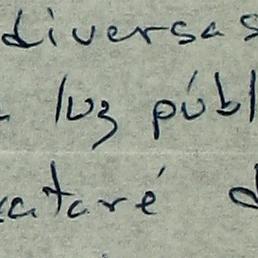 diversas
luz públ
ataré d